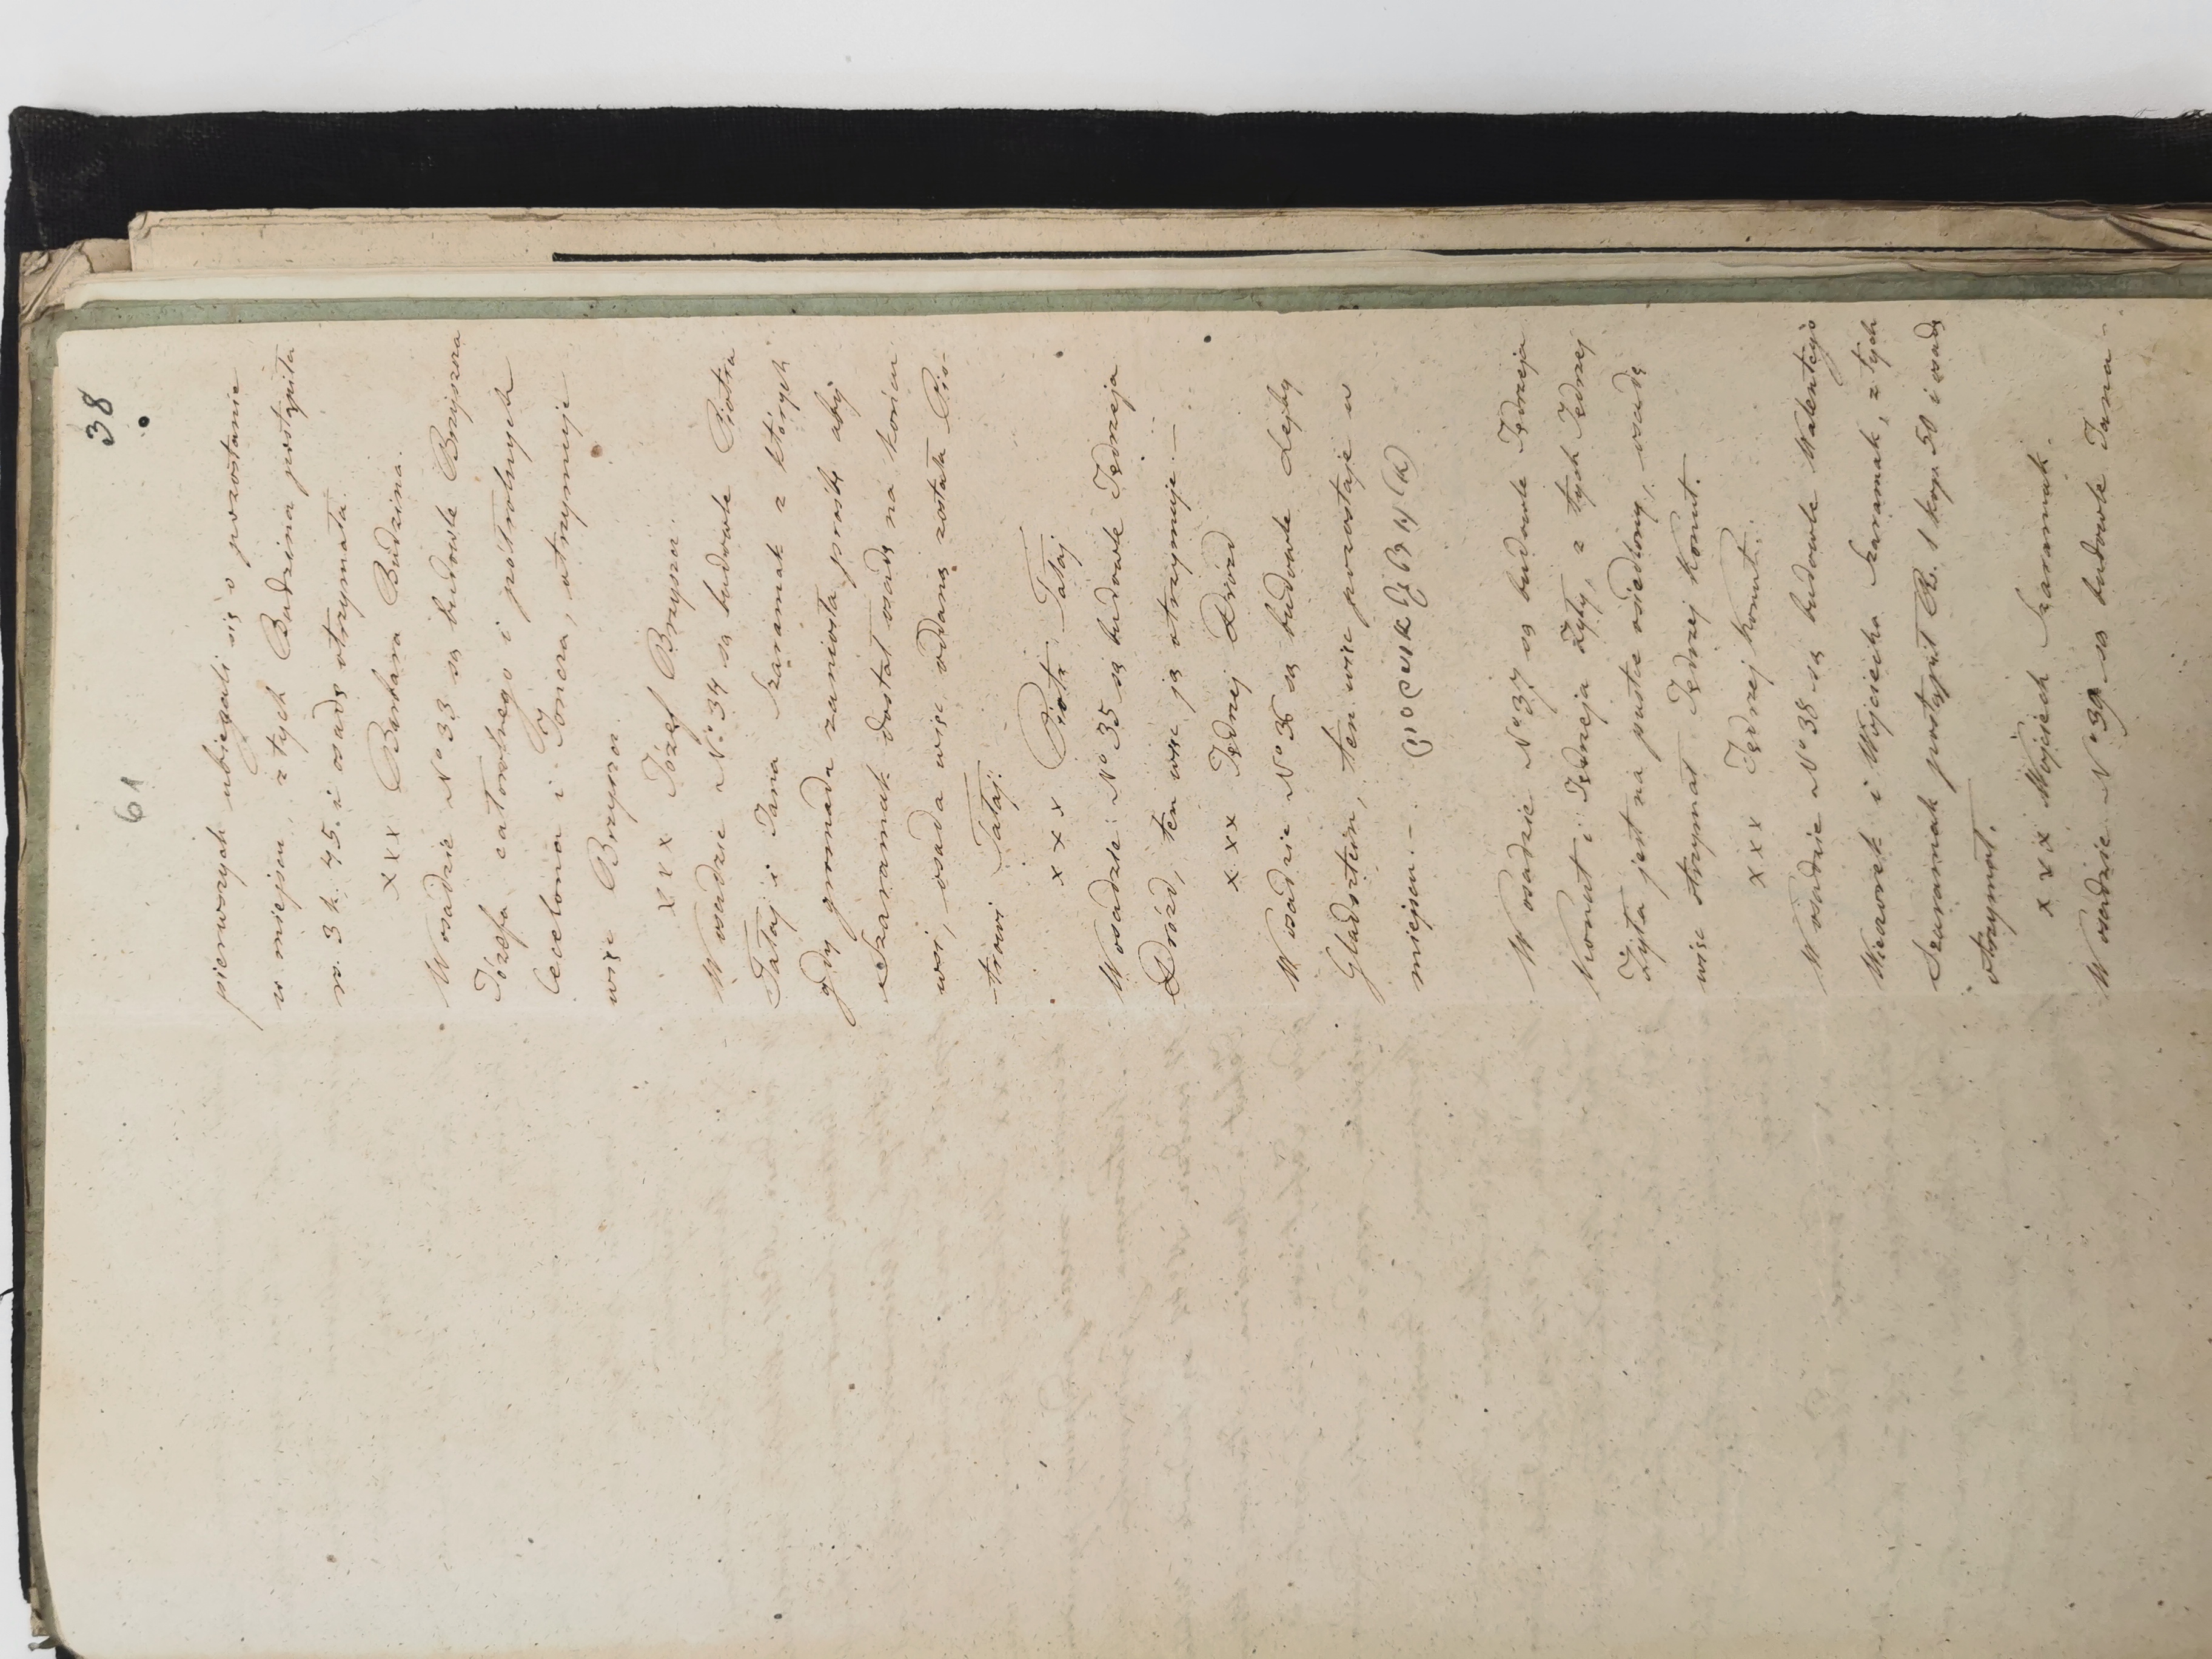 38
61
pierwszych ubiegali się o pozostanie
w miejscu, z tych Budzina postąpiła
rs. 3 k. 45. i osadę otrzymała.
x x x Barbara Budzina.
W osadzie No 33 są budowle Brzyszcza
Józefa całorolnego i półrolnych
i
więc Brzyszcz.
x x x Józef Brzyszcz.
W osadzie No 34 są budowle Piotra
Tataj i Jana Szaramak z których
gdy gromada zaniosła prośbę aby
Szaramak dostał osadę na końcu
wsi, osada więc oddaną została Pio-
trowi Tataj.
x x x Piotr Tataj
W osadzie No 35 są budowle Jędrzeja
Drózd, ten więc ją otrzymuje. —
x x x Jędrzej Drózd
W osadzie No 36 są budowle Lejby
Gladsztein, ten więc pozostaje w
miejscu. —
W osadzie No 37 są budowle Jędrzeja
Konut i Jędrzeja Żyły, z tych Jędrzej
Żyła jest na pustce osiedlony, osadę
więc otrzymał Jędrzej Konut.
x x x Jędrzej Konut.
W osadzie No 38 są budowle Walentego
Wieczorek i Wojciecha Szaramak, z tych
Szaramak postąpił Rs. 1 kop. 50 i osadę
otrzymał.
x x x Wojciech Szaramak.
W osadzie No 39 są budowle Jana